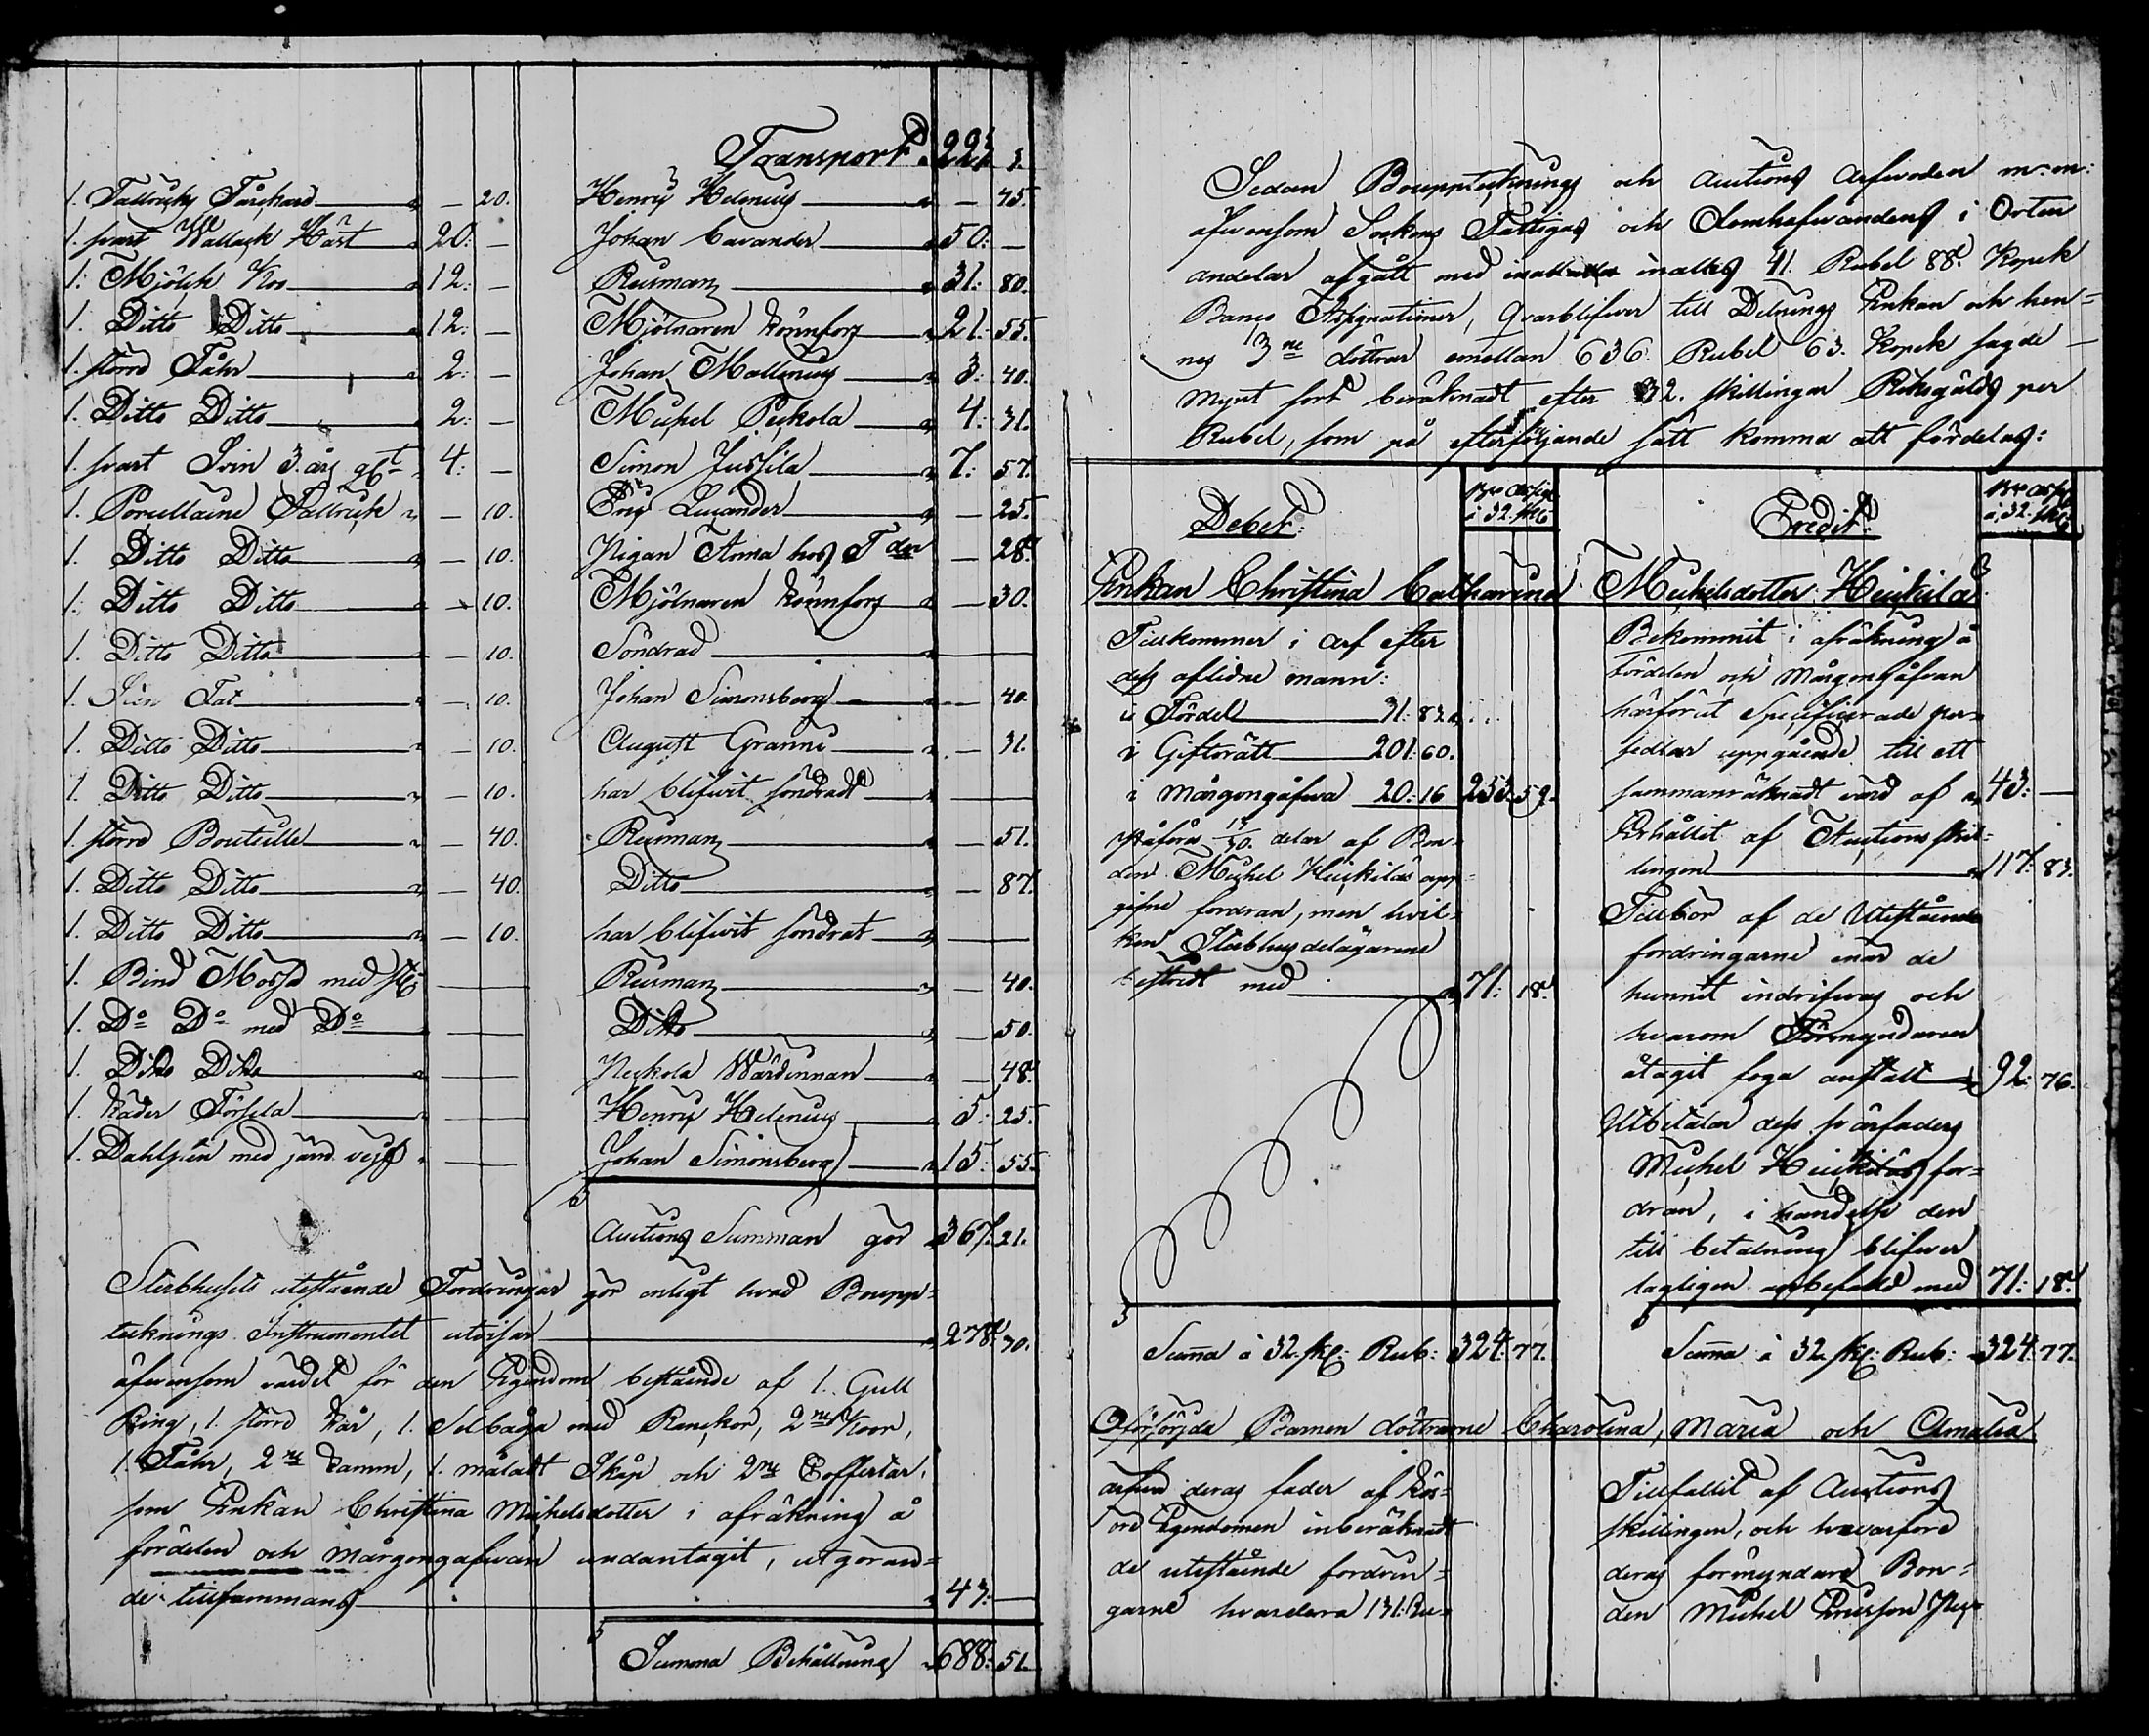 Transport 224 1.
1. Tallriks Fårskard — 20. Henric Helenius — 45.
1. svart Wallack Häst 20: — Johan Cavander 50: —
1: Mjölck Koo 12: — Rusman 31: 80.
1. Ditto Ditto 12: — Mjölnaren Könnfors 21: 55.
1. större Fåhr 2: — Johan Mallenius 3: 40.
1. Ditto Ditto 2: — Michel Peckola 4: 31.
1. svart Svin 3. års 4: — Simon Jussila 7: 57.
1. Porcellaine Tallrick — 10. Lucander — 25.
1. Ditto Ditto — 10. Pigan Anna hos — 28.
1. Ditto Ditto — 10. Mjölnaren Könnfors — 30.
1. Ditto Ditto — 10. Söndrad
1. Sten Fat — 10. Johan Simonsberg — 40.
1. Ditto Ditto — 10. August Granni — 31.
1. Ditto Ditto — 10. har blifwit söndradt
1. större Bouteille — 40. Rusman — 51.
1. Ditto Ditto — 40. Ditto — 87.
1. Ditto Ditto — 10. har blifwit söndrat
1. Bind med Rusman — 40.
1. Do Do med Do Ditto — 50.
1. Ditto Ditto Wärdinnan — 48.
1. Läder Förfela Henric Helenius 5: 25.
1. med järn Johan Simonsberg 15: 55.
Auctions Summan gör 367: 21.
Sterbhusets utestående Fordringar gör enligt hvad Boupp=
tecknings Instrumentet utvisar 278: 30.
äfwensom värdet för den Egendom bestående af 1. Gull
Ring, 1. större Kar, 1. Selbåga med 2ne Koor,
1. Fåhr, 2ne Lamm, 1. måladt Skåp och 2ne Coffertar,
som Enkan Christina Michelsdotter i afräkning å
fördelen och mårgongåfwan undantagit, utgöran=
de tillsammans 43: —
Summa Behållning 688: 51.
Sedan Bouppteknings och Auctions Arfwoden m: m:
äfwensom Sockens Fattigas och Domhafwandens i Orten
andelar afgått med inalles 41. Rubel 88. Kopek
Banco Assignationer, qvarblifwer till Delnings Enkan och hen=
nes 3ne döttrar emellan 636. Rubel 63. Kopek sagde
Mynt sort beräknadt efter 32. skillingar Riksgälds per
Rubel, som på efterföljande sätt komma att fördelas:
Debet: Bco Assign à 32. sk Credit: Bco Assign à 32. sk
Enkan Christina Catharina Michelsdotter Heickilä
Tillkommer i Arf efter
dess aflidne mann:
i Fördel 31: 83.
i Giftorätt 201: 60.
i mårgongåfwa 20: 16 253: 59.
Påföra delar af Bon=
den Michel Heickiläs upp=
gifne fordran, men hvil=
ken Sterbhus delägarene
bestridt med 71: 18.
Summa à 32. sk: Rub: 324: 77.
Bekommit i afräkning å
fördelen och Mårgongåfvan
härförut Specificerade per=
sedlar uppgående till ett
sammanräknadt värd af 43: —
Erhållit af Auctions skil=
lingen 117: 83.
Tillbör af de Utestående
fordringarne enär de
hunnit indrifwas och
hvarom Förmyndaren
åtagit foga anstalt 92: 76.
Utbetalar dess svärfaders
Michel Heickiläs for=
dran, i händelse den
till betalning blifwer
lagligen anbefald med 71: 18.
Summa à 32 sk: Rub: 324: 77.
Oförsörjda Barnen döttrarne Charolina, Maria och Amalia
ärfwa deras fader af lös=
öre Egendomen inberäknadt
de utestående fordrin=
garne hvardera 131: Ru=
Tillfallit af Auctions
skillingen, och hvarföre
deras förmyndare Bon=
den Michel Ericsson